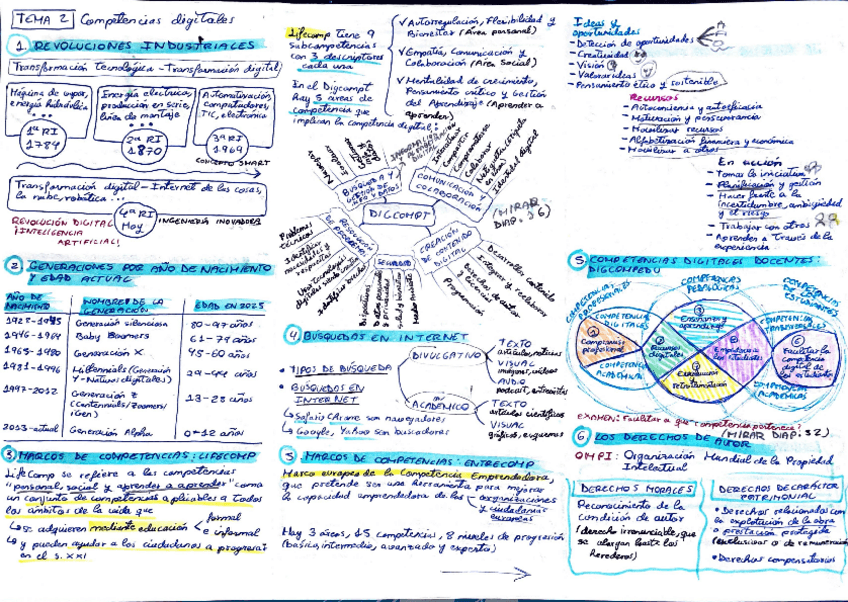 TEMA 2 Competencias digitales
1 REVOLUCIONES INDUSTRIALES
Transformación tecnológica - Transformación digital
Máquina de vapor,
energía hidráulica
1ª RI
1784
Energía eléctrica,
producción en serie,
línea de montaje
2ª RI
1870
Automatización,
computadores
TIC, electrónica
3ª RI
1969
CONCEPTO SMART
Transformación digital - Internet de las cosas,
la nube, robótica ...
REVOLUCIÓN DIGITAL
¡INTELIGENCIA
ARTIFICIAL!
4ª RI
Hoy
INGENIERÍA INOVADORA
2 GENERACIONES POR AÑO DE NACIMIENTO
Y EDAD ACTUAL
AÑO DE
NACIMIENTO
NOMBRE DE LA
GENERACIÓN
EDAD EN 2025
1928-1945 Generación silenciosa 80-97 años
1946-1964 Baby Boomers 61-79 años
1965-1980 Generación X 45-60 años
1981-1996 Millennials (Generación
Y - Nativos digitales) 29-44 años
1997-2012 Generación Z
(Centennials/Zoomers/
iGen) 13-28 años
2013-actual Generación Alpha 0-12 años
3 MARCOS DE COMPETENCIAS: LIFECOMP
LifeComp se refiere a las competencias
"personal, social y aprender a aprender" como
un conjunto de competencias aplicables a todos
los ámbitos de la vida que
↳ se adquieren mediante educación formal
e informal
↳ y pueden ayudar a los ciudadanos a progresar
en el S. XXI
Lifecomp tiene 9
subcompetencias
con 3 descriptores
cada una
✓ Autorregulación, Flexibilidad y
Bienestar (Área personal)
✓ Empatía, Comunicación y
Colaboración (Área Social)
✓ Mentalidad de crecimiento,
Pensamiento crítico y Gestión
del Aprendizaje (Aprender a
aprender)
En el Digcompt
hay 5 áreas de
competencia que
implican la competencia digital:
DIGCOMPT
COMUNICACIÓN Y
COLABORACIÓN
Compartir
Colaborar
Identidad digital
CREACIÓN
DE CONTENIDO
DIGITAL
Desarrollar contenido
Integrar y reelaborar
Programación
SEGURIDAD
Dispositivos
Medio ambiente
RESOLUCIÓN
DE PROBLEMAS
Problemas
técnicos
Identificar
necesidades y
respuestas
Navegar
Evaluar
(MIRAR
DIAP. 16)
4 BÚSQUEDAS EN INTERNET
• TIPOS DE BÚSQUEDA
• BÚSQUEDAS EN
INTERNET
↳ Safari o Chrome son navegadores
↳ Google, Yahoo son buscadores
DIVULGATIVO
TEXTO
artículos, noticias
VISUAL
imágenes, vídeos
AUDIO
podcast, entrevistas
ACADÉMICO
TEXTO
artículos científicos
VISUAL
gráficos, esquemas
5 MARCOS DE COMPETENCIAS: ENTRECOMP
Marco europeo de la Competencia Emprendedora,
que pretende ser una herramienta para mejorar
la capacidad emprendedora de las organizaciones
y ciudadanías
europeas
Hay 3 áreas, 15 competencias, 8 niveles de progresión
(básico, intermedio, avanzado y experto)
Ideas y
oportunidades
- Detección de oportunidades
- Creatividad
- Visión
- Valorar ideas
- Pensamiento ético y sostenible
Recursos
- Autoconciencia y autoeficacia
- Motivación y perseverancia
- Movilizar recursos
- Alfabetización financiera y económica
- Movilizar a otros
En acción
- Tomar la iniciativa
- Planificación y gestión
- Hacer frente a la
incertidumbre, ambigüedad
y el riesgo
- Trabajar con otros
- Aprender a través de la
experiencia
5 COMPETENCIAS DIGITALES DOCENTES:
DIGCOMPEDU
COMPETENCIAS
PROFESIONALES
COMPETENCIAS
PEDAGÓGICAS
COMPETENCIAS
DE LOS
ESTUDIANTES
COMPETENCIAS
DIGITALES
COMPETENCIAS
TRANSVERSALES
COMPETENCIAS
ACADÉMICAS
1 Compromiso
profesional
2 Recursos
digitales
3 Enseñanza y
aprendizaje
4 Evaluación y
retroalimentación
5 Empoderar a
los estudiantes
6 Facilitar la
competencia
digital de
los estudiantes
COMPETENCIAS
ACADÉMICAS
EXAMEN: Facilitar a que competencia pertenece?
(MIRAR DIAP. 32)
6 LOS DERECHOS DE AUTOR
OMPI: Organización Mundial de la Propiedad
Intelectual
DERECHOS MORALES
Reconocimiento de la
condición de autor
(derecho irrenunciable, que
se alargan hasta los
herederos)
DERECHOS DE CARÁCTER
PATRIMONIAL
• Derechos relacionados con
la explotación de la obra
o prestación protegida
(exclusivos o de remuneración)
• Derechos compensatorios